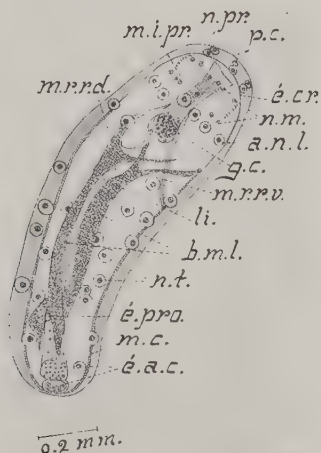 n.pr.
m.i.pr.
p.c.
m.r.r.d.
é.cr.
n.m.
a.n.l.
g.c.
m.r.r.v.
li.
b.m.l.
n.t.
é.pro.
m.c.
é.a.c.
0.2 mm.